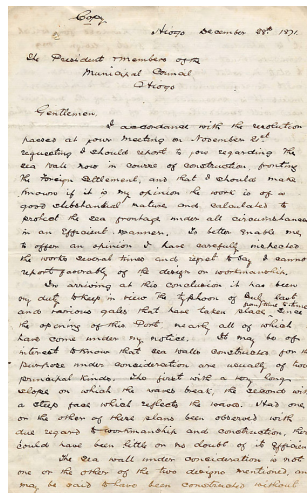 Copy
Hiogo December 28th 1871.
The President & Members of the
Municipal Council
Hiogo
Gentlemen.
I accordance with the resolution
passed at your Meeting on November 21st
requesting I should report to you regarding the
sea wall now in course of construction fronting
the Foreign Settlement, and that I should make
known if it is my opinion the work is of a
good substantial nature and calculated to
protect the sea frontage under all circumstances
in an Efficient manner. To better enable me
to offer an opinion I have carefully inspected
the works several times and regret to say I cannot
report favorably of the design or workmanship.
In arriving at this conclusion it has been
my duty to keep in view the typhoon of July last
and various gales that have taken place since
the opening of this Port nearly all of which
have come under my notice. It may be of
interest to know that sea walls constructed for the
purpose under consideration are usually of two
principal kinds. The first with a very long
slope on which the waves break, the second with
a steep face which reflects the waves. Had one
or the other of these plans been observed with
due regard to workmanship and construction, there
could have been little or no doubt of its Efficiency
The sea wall under consideration is not
one or the other of the two designs mentioned, and
may be said to have been constructed without